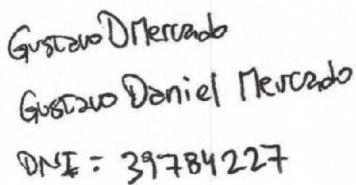 Gustavo D Mercado
Gustavo Daniel Mercado
DNI = 39784227